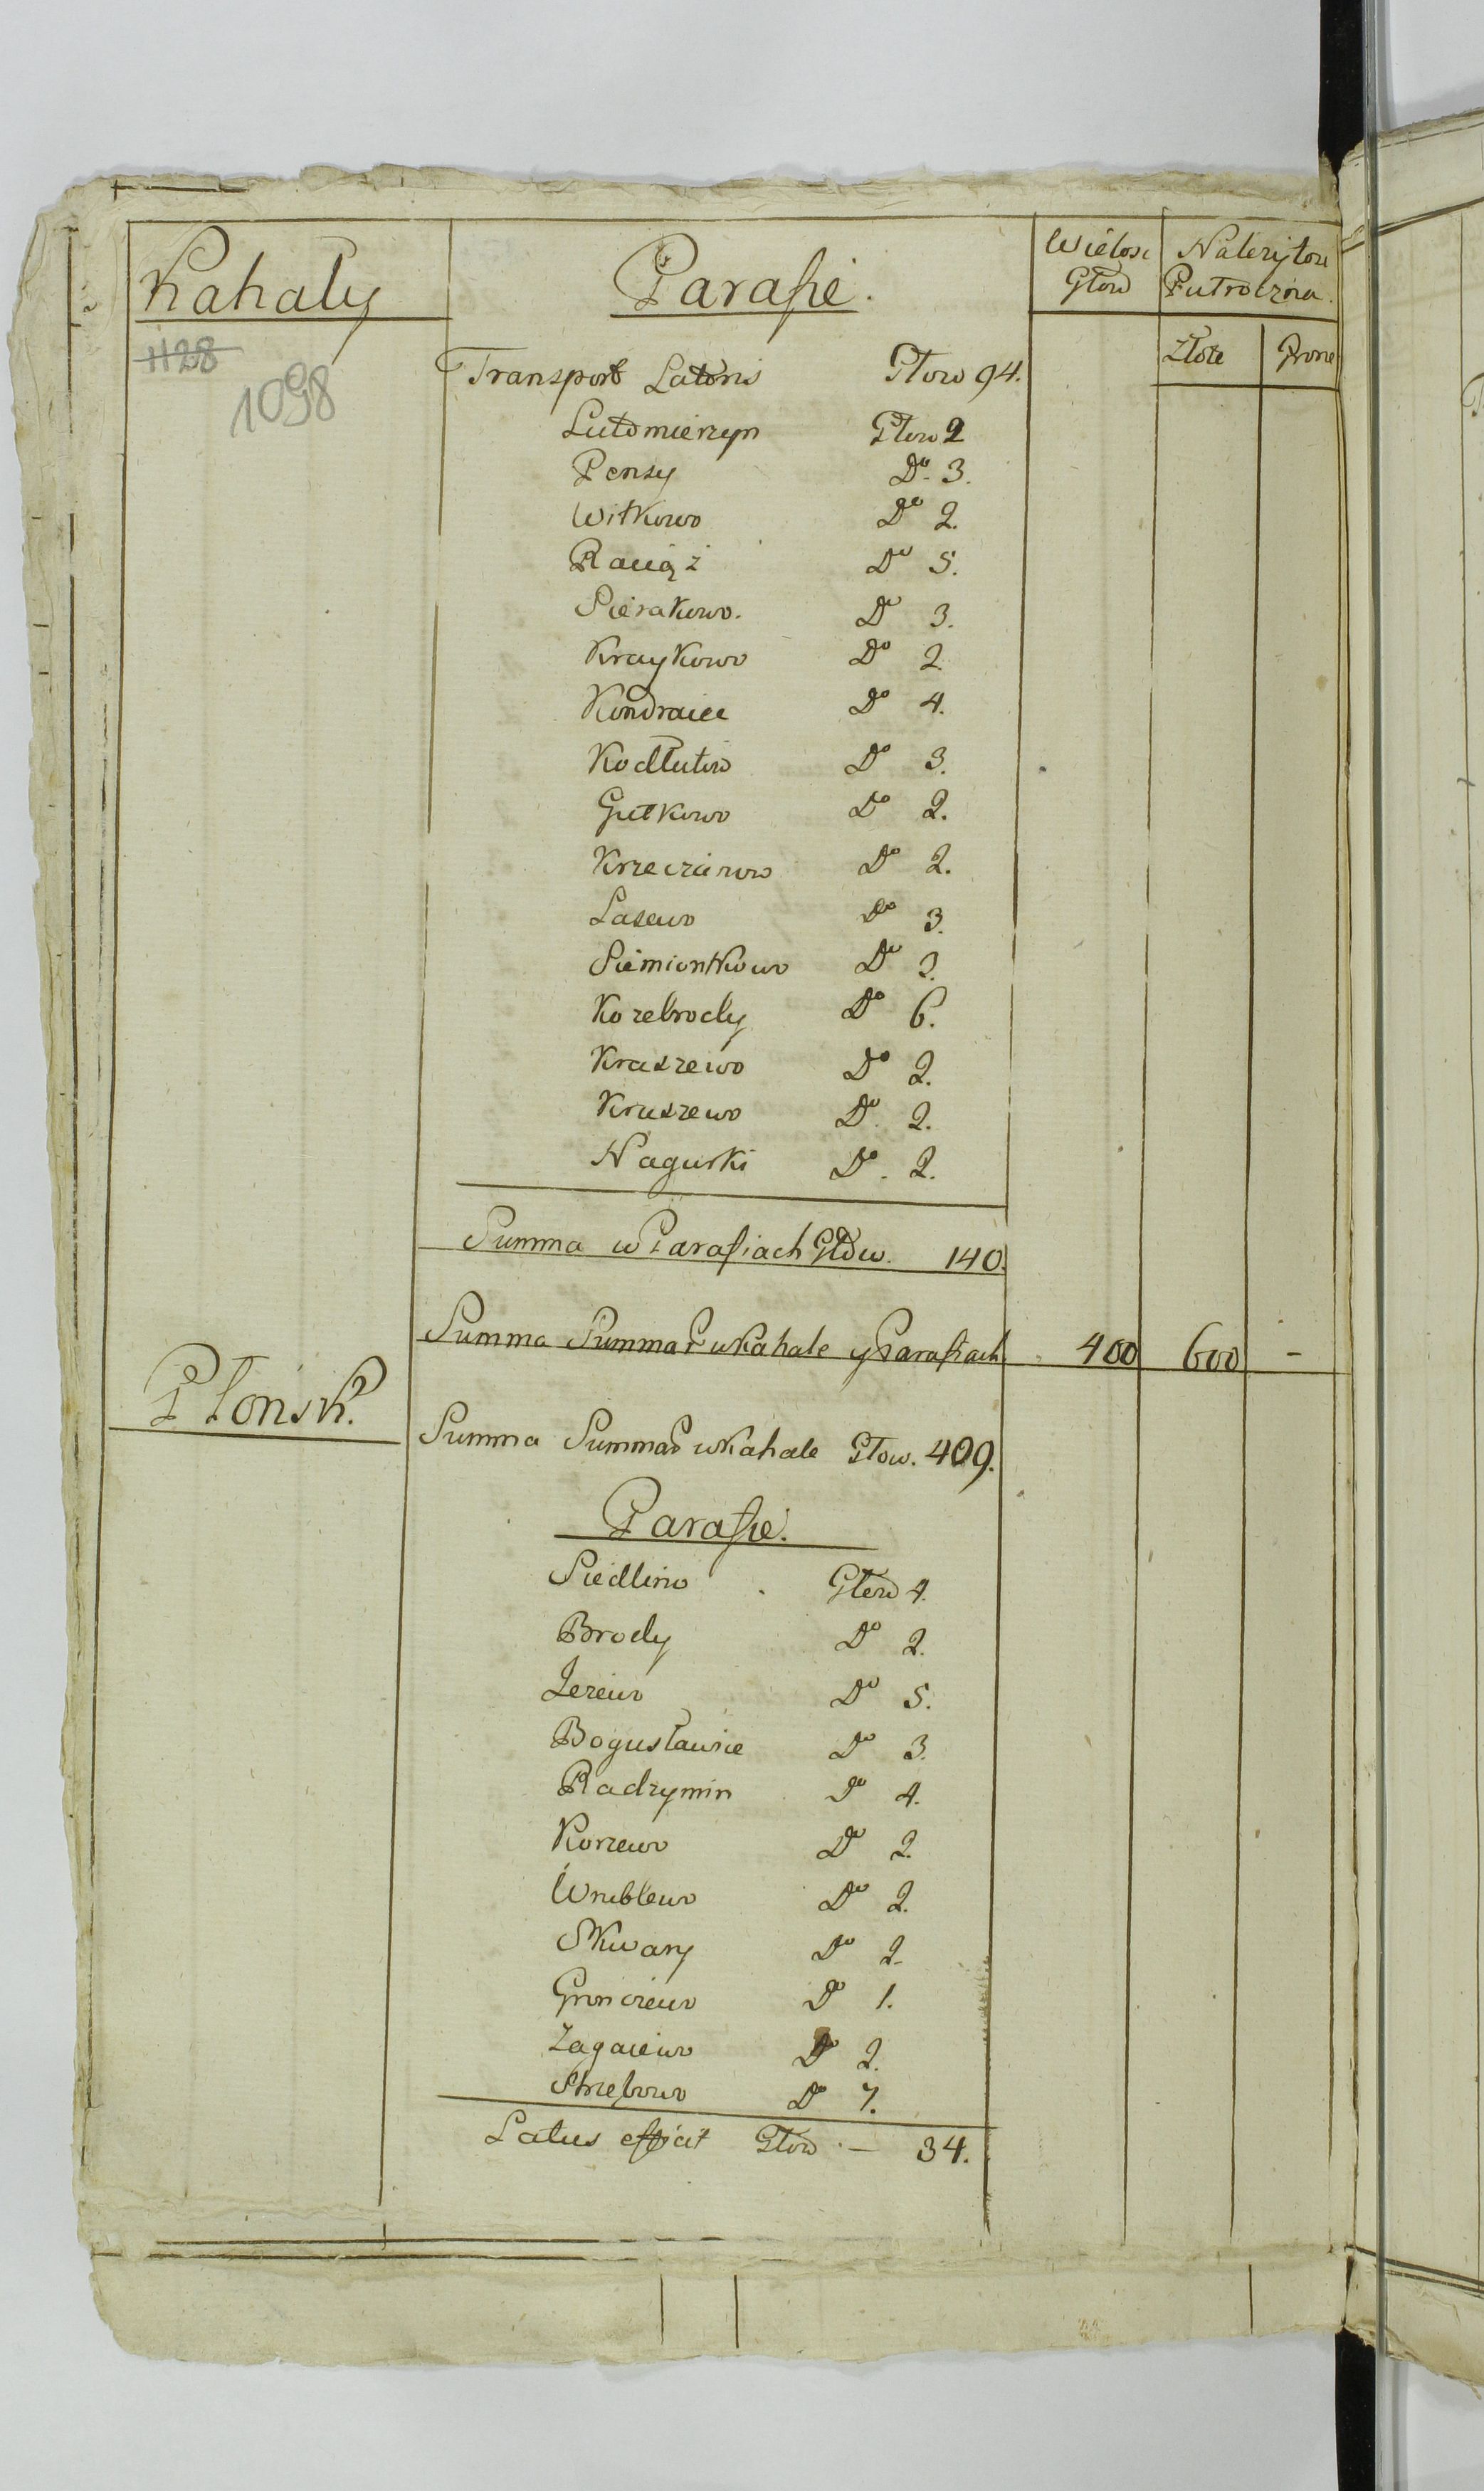 Kahały
Parafie.
Wielosc
Głow
Należytosc
Pułroczna.
Złote
Grosze
1128
1098
Transport Lateris Głow 94.
Lutomierzyn Głow 2
Pensy Do. 3.
Witkowo Do 2.
Raciąż Do 5.
Sierakowo. Do 3.
Kraykowo Do 2
Kondraiec Do 4.
Kodłutow Do 3.
Gutkowo Do 2.
Krzeczanowo Do 2.
Lasewo Do 3.
Siemiontkowo Do 3.
Kozebrody Do 6.
Kraszewo Do 2.
Kruszewo Do. 2.
Nagurki Do. 2.
Summa w Parafiach Głow. 140.
Summa Summar w Kahale y Parafiach 400 600 -
Płonsk.
Summa Summar w Kahale Głow. 409.
Parafie.
Siedlino Głow 4.
Brody Do 2.
Jezewo Do 5.
Bogusławice Do 3.
Radzymin Do 4.
Korzewo Do 2.
Wrublewo Do 2.
Skwary Do 2.
Gronczewo Do 1.
Zagaiewo Do 2.
Strzebowo Do 7.
Latus efficit Głow - 34.